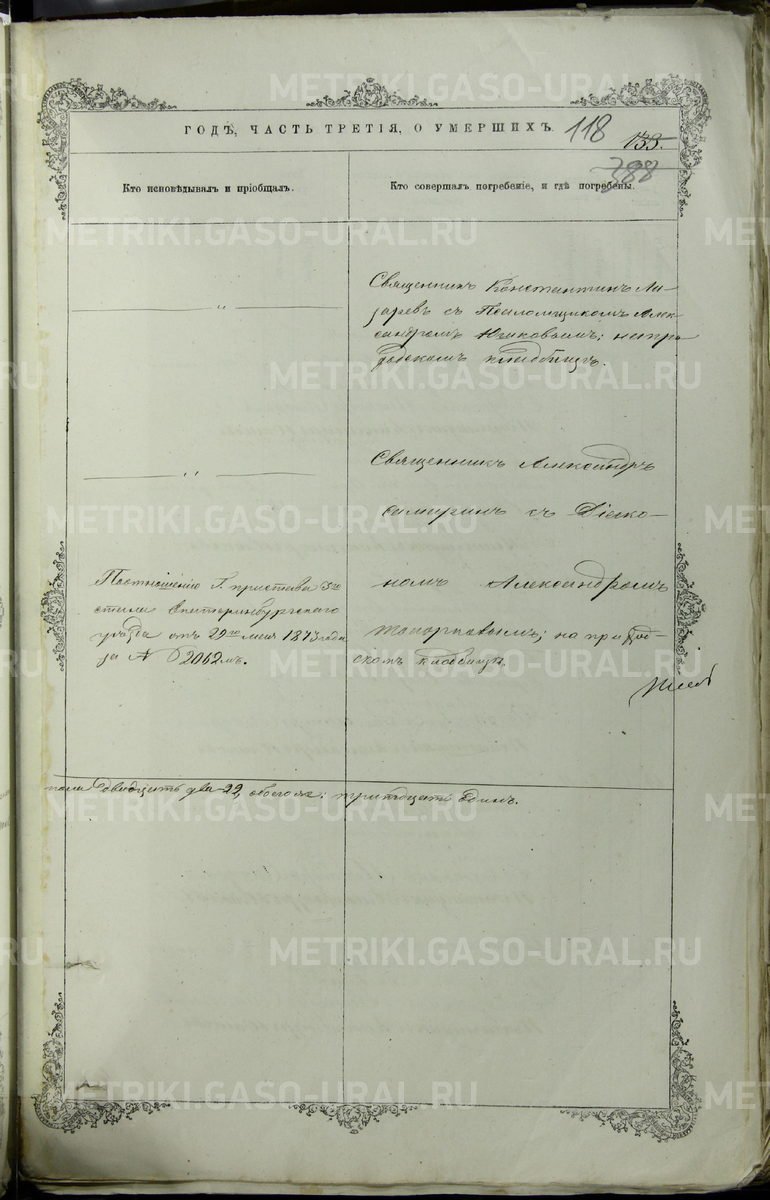 METRIKI.GASO-URAL.RU
ГОДѢ, ЧАСТЬ ТРЕТІЯ, О УМЕРШИХЪ.
118
133.
388
Кто исповѣдывалъ и пріобщалъ.
Кто совершалъ погребеніе, и гдѣ погребены.
Священникъ Константинъ Ла-
заревъ съ Псаломщикомъ Алек-
сандромъ на при
ходскомъ кладбищѣ.
Священникъ Александръ
съ Діако-
номъ Александромъ
Топорковымъ; на приход-
скомъ кладбищѣ.
По отношенію Г. пристава 3го
стана Екатеринбургскаго
уѣзда отъ 29го мая 1873 года
за № 2062мъ.
пола двадцать два 22, обоего же: тридцать одинъ.